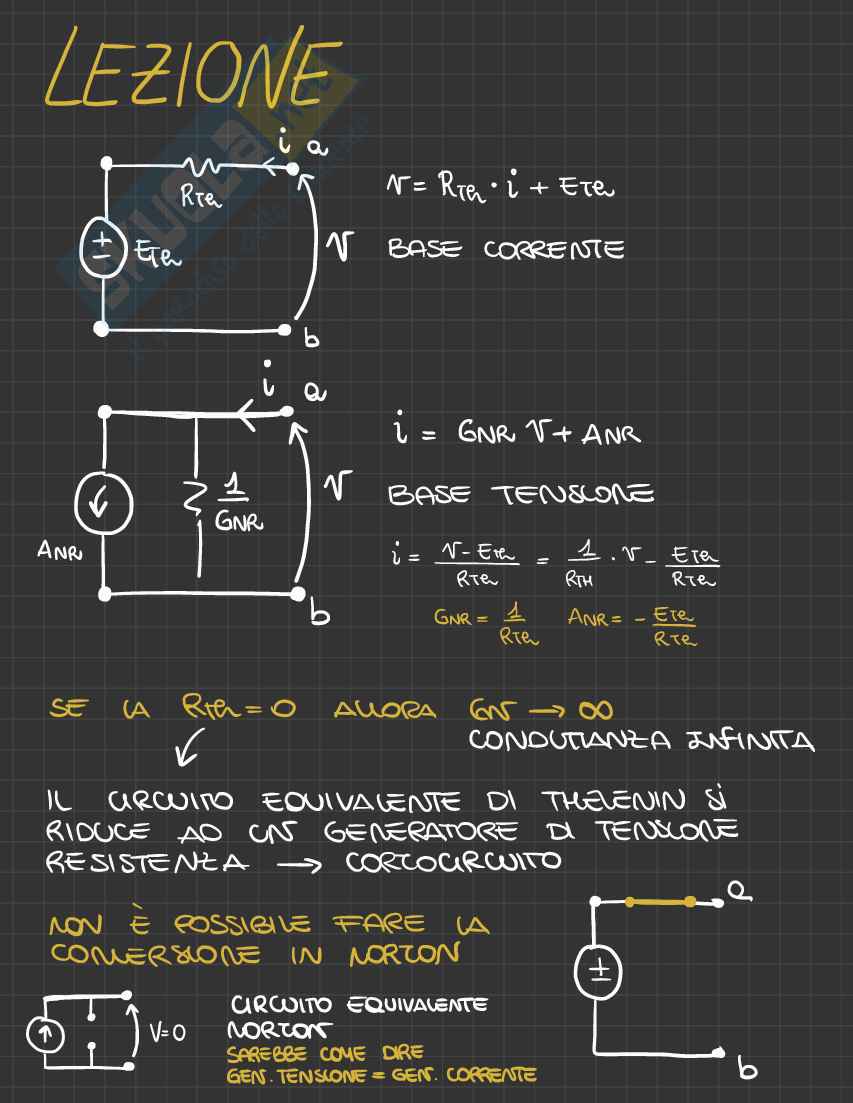 LEZIONE
i a
RTh
v = RTh · i + ETh
+
−
ETh
v
BASE CORRENTE
b
i a
i = GNR v + ANR
v
1
GNR
BASE TENSIONE
ANR
i = v - ETh / RTh = 1 / RTH · v - ETh / RTh
b
GNR = 1 / RTh ANR = - ETh / RTh
SE LA RTh = 0 ALLORA GN → ∞
CONDUTTANZA INFINITA
IL CIRCUITO EQUIVALENTE DI THELENIN SI
RIDUCE AD UN GENERATORE DI TENSIONE
RESISTENZA → CORTOCIRCUITO
a
NON È POSSIBILE FARE LA
CONVERSIONE IN NORTON
+
−
CIRCUITO EQUIVALENTE
V=0
NORTON
SAREBBE COME DIRE
GEN. TENSIONE = GEN. CORRENTE
b
SKUOLA.net